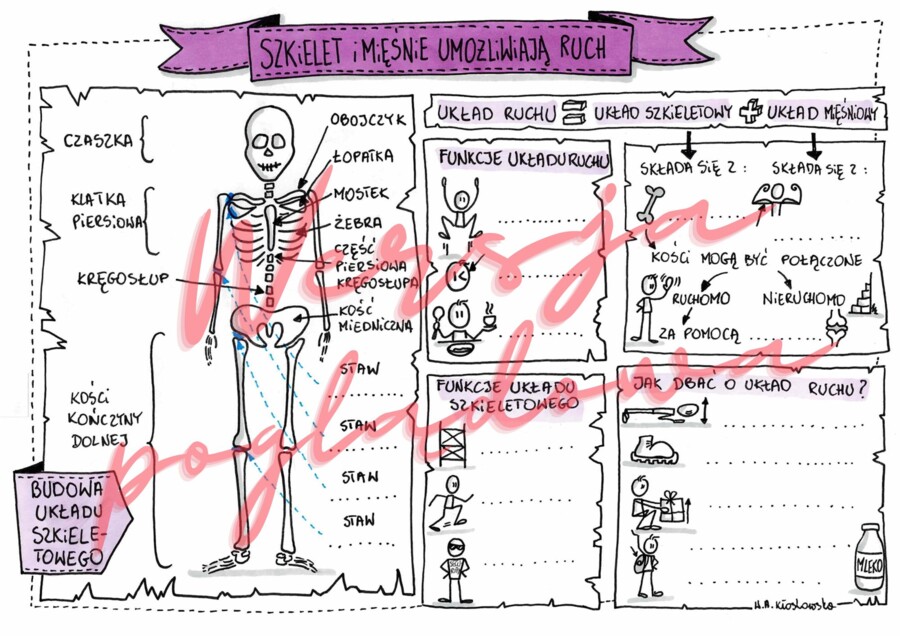 SZKIELET i MIĘŚNIE UMOŻLIWIAJĄ RUCH
CZASZKA
KLATKA
PIERSIOWA
KRĘGOSŁUP
KOŚCI
KOŃCZYNY
DOLNEJ
BUDOWA
UKŁADU
SZKIELE-
TOWEGO
OBOJCZYK
ŁOPATKA
MOSTEK
ŻEBRA
CZĘŚĆ
PIERSIOWA
KRĘGOSŁUPA
KOŚĆ
MIEDNICZNA
STAW
STAW
STAW
STAW
UKŁAD RUCHU = UKŁAD SZKIELETOWY + UKŁAD MIĘŚNIOWY
FUNKCJE UKŁADU RUCHU
SKŁADA SIĘ Z :
SKŁADA SIĘ Z :
KOŚCI MOGĄ BYĆ POŁĄCZONE
RUCHOMO
NIERUCHOMO
ZA POMOCĄ
FUNKCJE UKŁADU
SZKIELETOWEGO
JAK DBAĆ O UKŁAD RUCHU?
MLEKO
Wersja
poglądowa